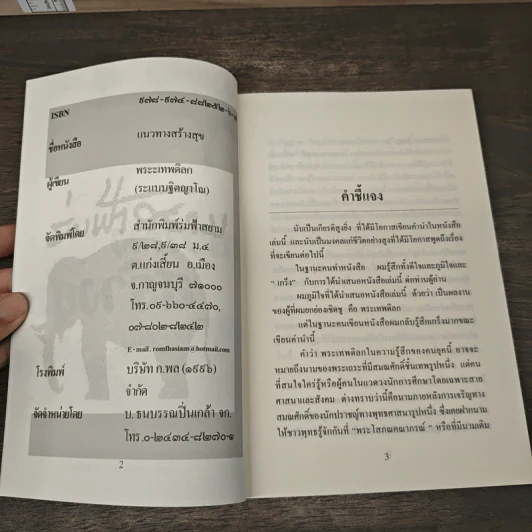 ISBN ๙๗๘-๙๗๔-๘๘๒๕๒-๖-
ชื่อหนังสือ แนวทางสร้างสุข
ผู้เขียน พระเทพดิลก
(ระแบบฐิตญาโณ)
จัดพิมพ์โดย สำนักพิมพ์ร่มฟ้าสยาม
๙/๒๘,๙/๓๘ ม.๔
ต.แก่งเสี้ยน อ.เมือง
จ.กาญจนบุรี ๗๑๐๐๐
โทร.๐๘-๖๖๐-๔๔๗๐,
๐๗-๘๐๒-๘๒๔๒
E - mail . romfhasiam@hotmail.com
โรงพิมพ์ บริษัท ก.พล (๑๙๙๖)
จำกัด
จัดจำหน่ายโดย บ. ธนบรรณปิ่นเกล้า จก.
โทร.๐-๒๔๓๔-๘๒๗๐-๑
2
คำชี้แจง
นับเป็นเกียรติสูงยิ่ง ที่ได้มีโอกาสเขียนคำนำในหนังสือ
เล่มนี้ และนับเป็นมงคลแก่ชีวิตอย่างสูงที่ได้มีโอกาสพูดถึงเรื่อง
ที่จะเขียนต่อไปนี้
ในฐานะคนทำหนังสือ ผมรู้สึกทั้งดีใจและภูมิใจและ
" เกร็ง" กับการได้นำเสนอหนังสือเล่มนี้ ต่อท่านผู้อ่าน
ผมภูมิใจที่ได้นำเสนอหนังสือเล่มนี้ ด้วยว่า เป็นผลงาน
ของผู้ที่ผมยกย่องเชิดชู คือ พระเทพดิลก
แต่ในฐานะคนเขียนหนังสือผมกลับรู้สึกเกร็งมากขณะ
เขียนคำนำนี้
คำว่า พระเทพดิลกในความรู้สึกของคนยุคนี้ อาจจะ
หมายถึงนามของพระเถระที่มีสมณศักดิ์ชั้นเทพรูปหนึ่ง แต่คน
ที่สนใจใคร่รู้หรือผู้คนในแวดวงนักการศึกษาโดยเฉพาะสาย
ศาสนาและสังคม ต่างทราบว่านี้คือนามภายหลังการเจริญทาง
สมณศักดิ์ของนักปราชญ์ทางพุทธศาสนารูปหนึ่ง ซึ่งเคยฝากนาม
ให้ชาวพุทธรู้จักกันที่ "พระโสภณคณาภรณ์ " หรือที่มีนามเดิม
3